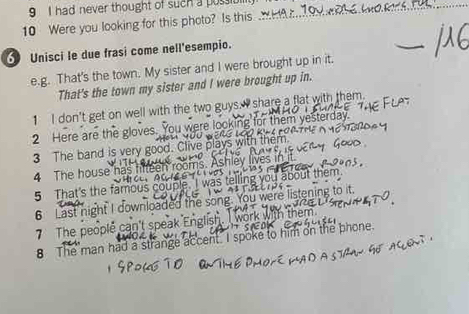 9 I had never thought of such a
10 Were you looking for this photo? Is this WHAT YOU WERE LOOKING FOR
6 Unisci le due frasi come nell'esempio.
/16
e.g. That's the town. My sister and I were brought up in it.
That's the town my sister and I were brought up in.
1 I don't get on well with the two guys. I share a flat with them.
WITH WHO I SHARE THE FLAT
2 Here are the gloves. You were looking for them yesterday.
YOU WERE LOOKING FOR THEM YESTERDAY
3 The band is very good. Clive plays with them.
WITH WHO CLIVE PLAYS IS VERY GOOD.
4 The house has fifteen rooms. Ashley lives in it.
ASHLEY LIVES IN HAS FIFTEEN ROOMS.
5 That's the famous couple. I was telling you about them.
COUPLE
6 Last night I downloaded the song. You were listening to it.
THAT YOU WERE LISTENING TO.
7 The people can't speak English. I work with them.
WORK WITH CAN'T SPEAK ENGLISH
8 The man had a strange accent. I spoke to him on the phone.
I SPOKE TO ON THE PHONE HAD A STRANGE ACCENT.